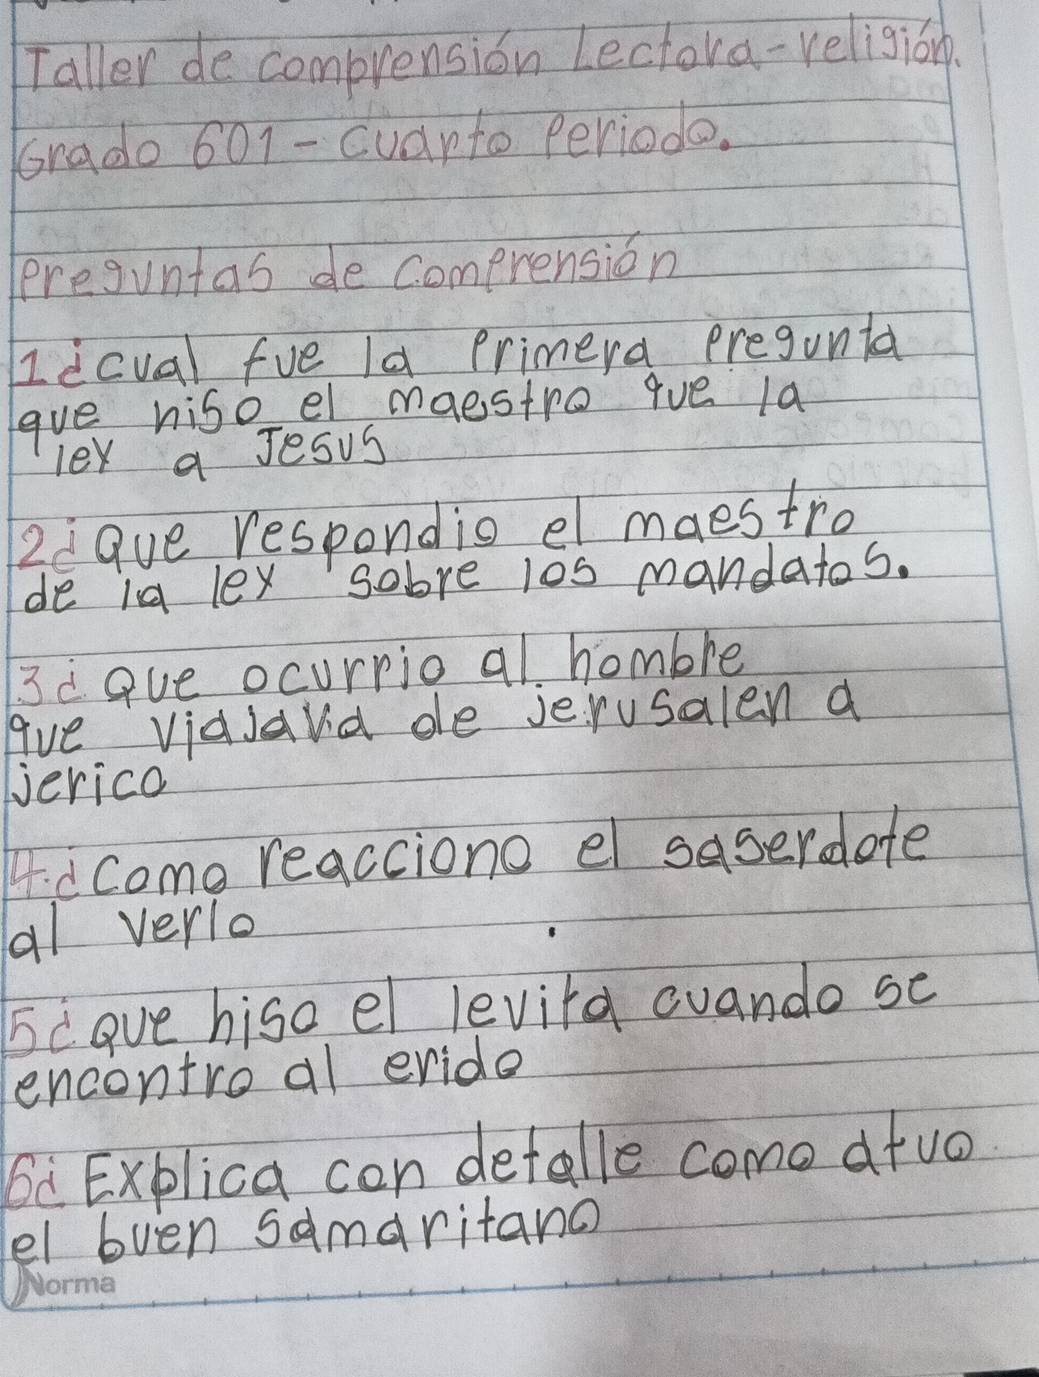 Taller de comprensión Lectora-religión.
Grado 601-cuarto Periodo.
Preguntas de comprensión
1¿cual fue la Primera Pregunta
que hiso el maestro que la
ley a Jesus
2¿que respondio el maestro
de la ley sobre los mandatos.
3¿que ocurrio al hombre
que viajava de jerusalen a
jerico
4.¿como reacciono el saserdote
al verlo
5¿que hiso el levita cuando se
encontro al erido
6¿Explica con detalle como atuo
el buen samaritano
Norma